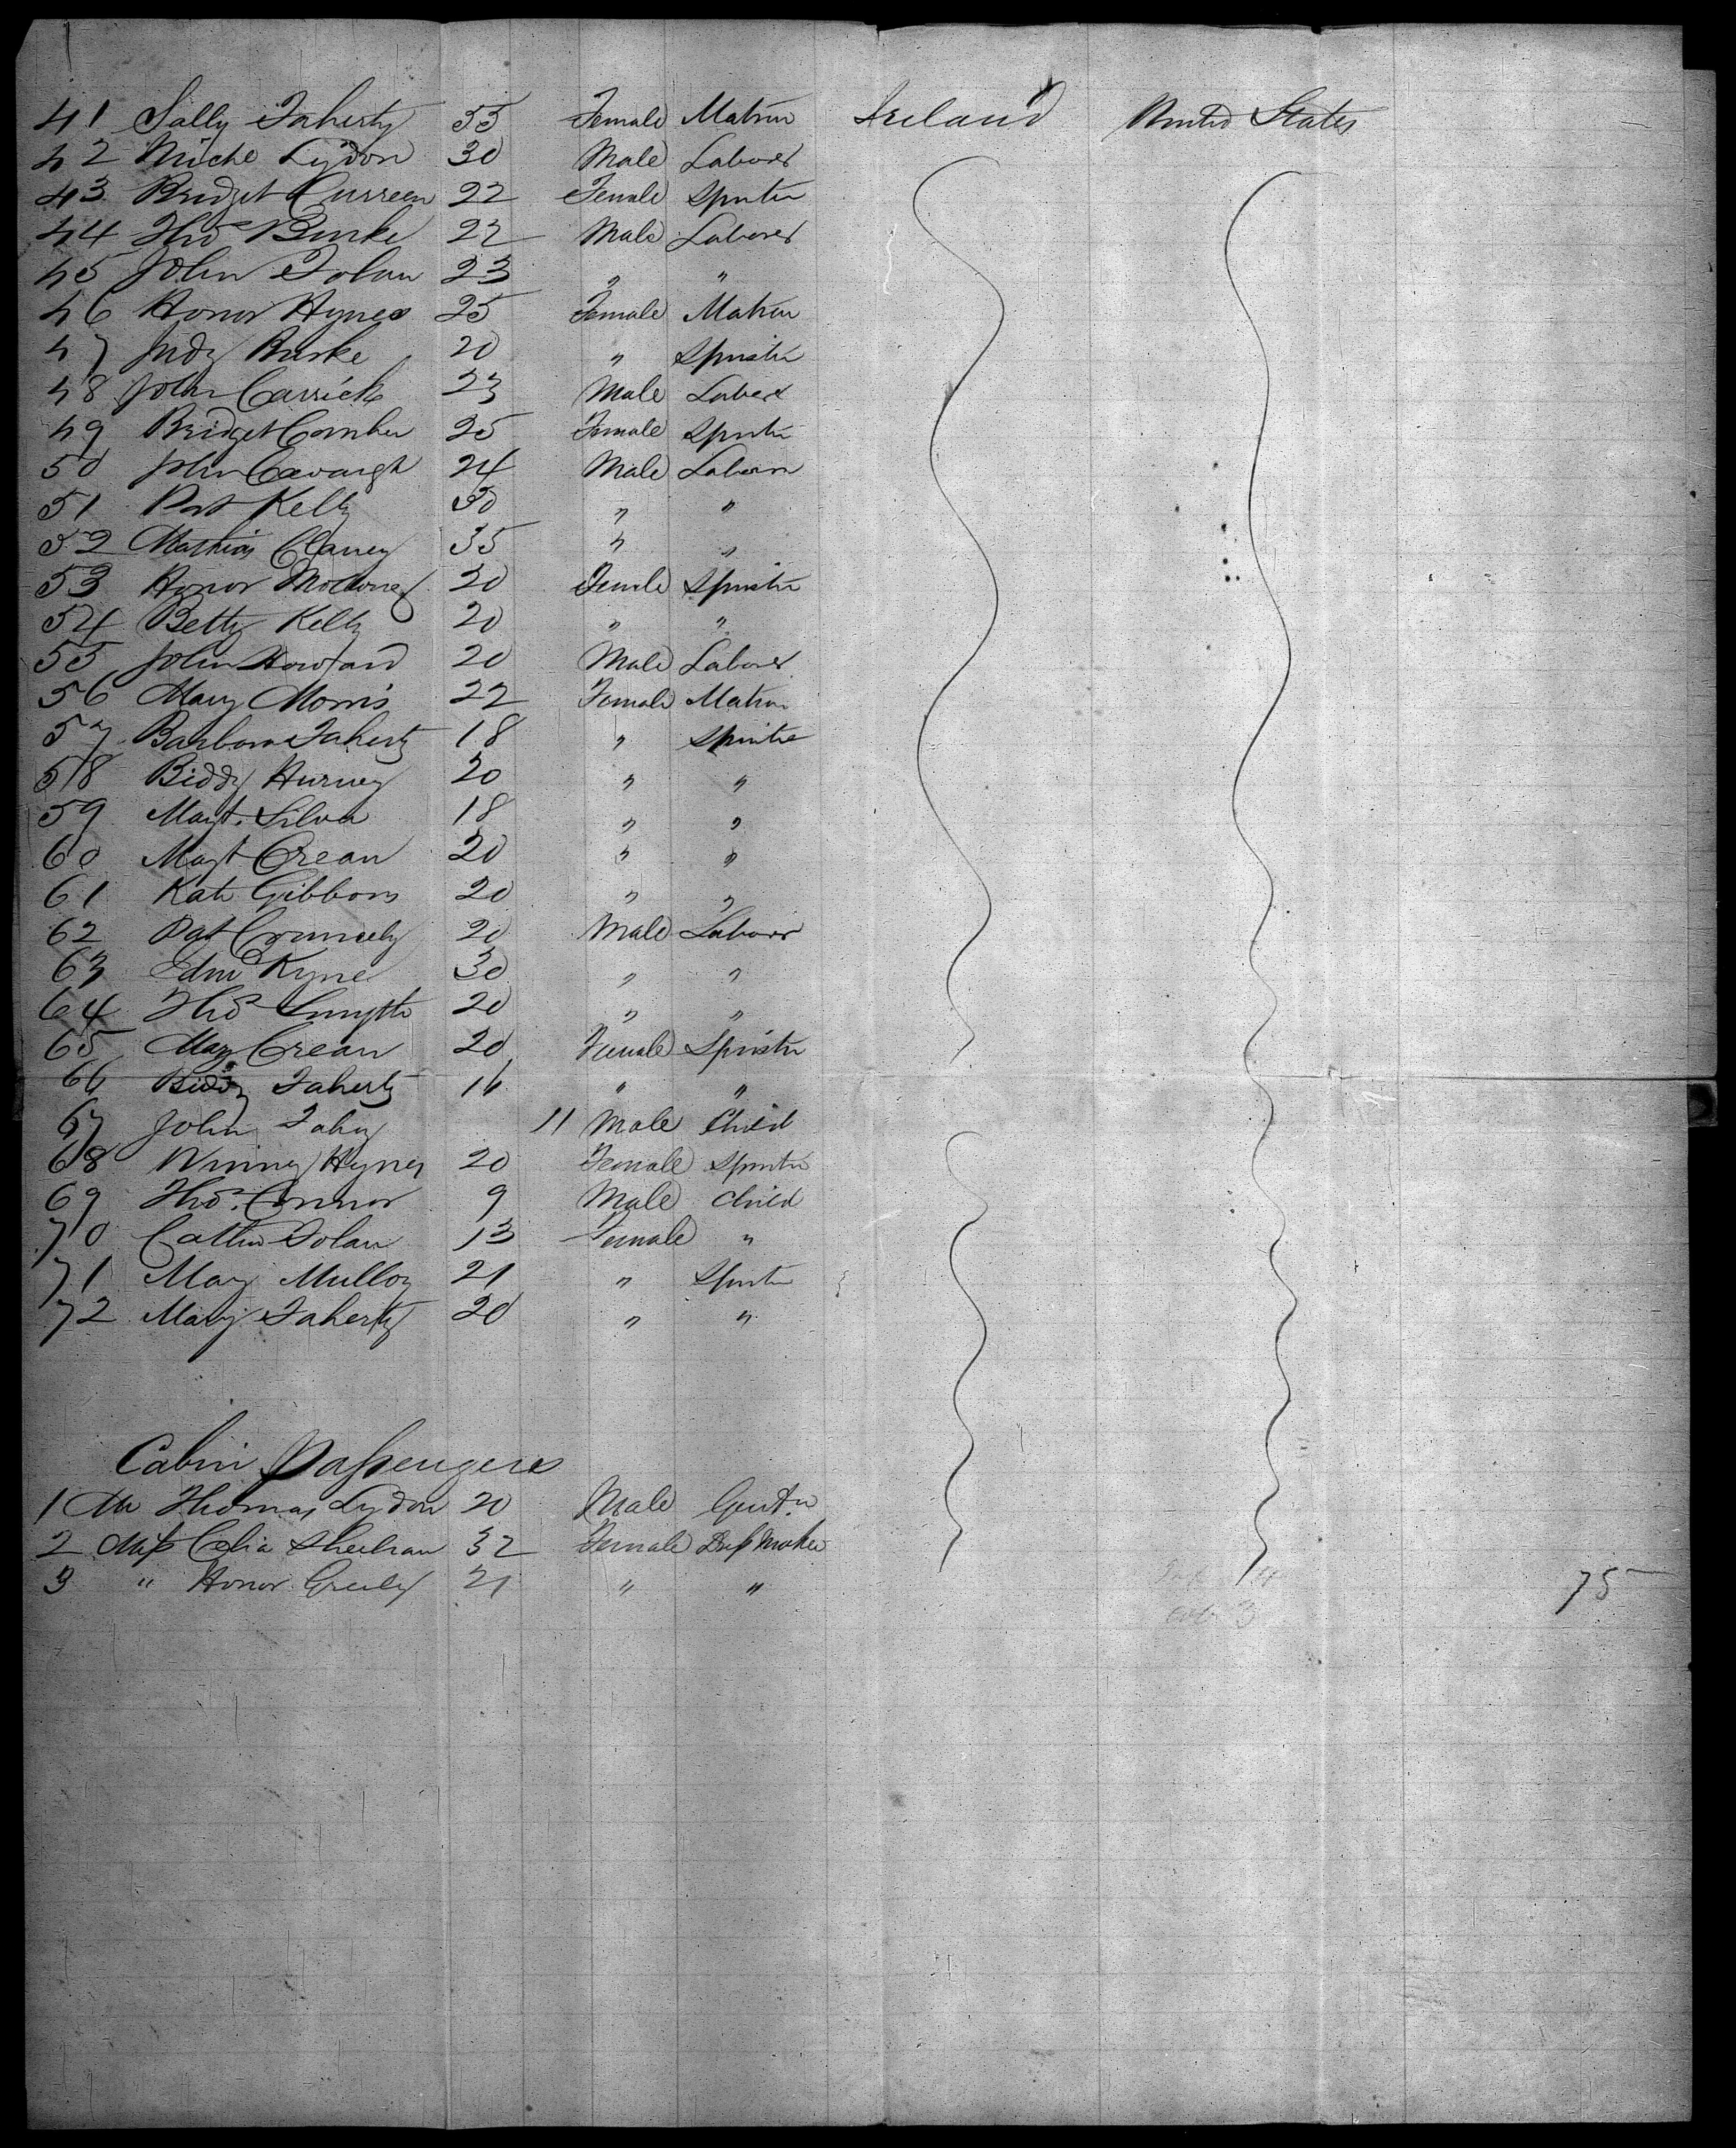 41 Sally Faherty 55 Female Matron Ireland United States
42 Michl Lydon 30 Male Laborer
43 Bridget Curreen 22 Female Spinster
44 Thos Burke 22 Male Laborer
45 John Folan 23 " "
46 Honor Hynes 25 Female Matron
47 Judy Burke 20 " Spinster
48 John Carrick 23 Male Laborer
49 Bridget Comber 25 Female Spinster
50 John Cavangh 24 Male Laborer
51 Pat Kelly 50 " "
52 Mathias Clancy 35 " "
53 Honor 20 Female Spinster
54 Betty Kelly 20 " "
55 John Howard 20 Male Laborer
56 Mary Morris 22 Female Matron
57 Barbara Faherty 18 " Spinster
58 Biddy Hurney 20 " "
59 Margt. Silva 18 " "
60 Margt Crean 20 " "
61 Kate Gibbons 20 " "
62 Pat Conneely 20 Male Laborer
63 Edmd Kyne 30 " "
64 Thos Smyth 20 " "
65 Mary Crean 20 Female Spinster
66 Biddy Faherty 16 " "
67 John Fahy 11 Male Child
68 Winny Hynes 20 Female Spinster
69 Thos. Connor 9 Male Child
70 Cathn Folan 13 Female "
71 Mary Mulloy 21 " Spinster
72 Mary Faherty 20 " "
Cabin Passengers
1 Mr Thomas Lydon 20 Male Gentn
2 Miss Celia Sheehan 32 Female Dress Maker
3 " Honor Grealy 21 " "
75